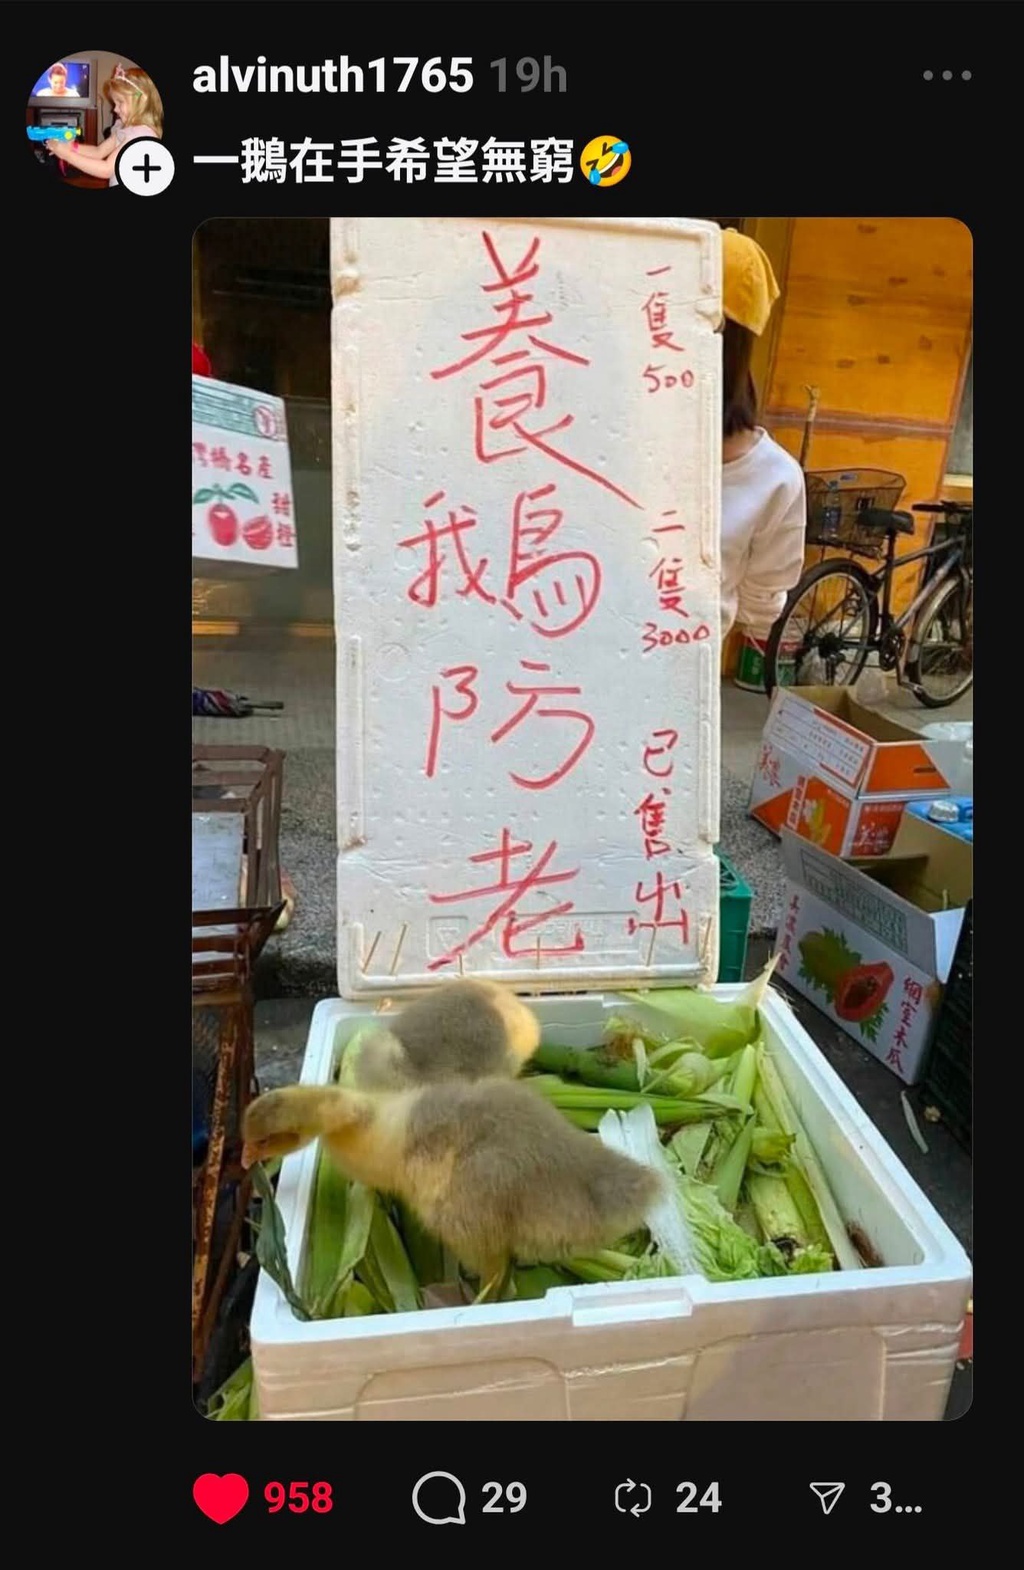 alvinuth1765 19h
一鵝在手希望無窮🤣
養鵝防老
一隻500
二隻3000
已售出
名產
網室木瓜
958
29
24
3...